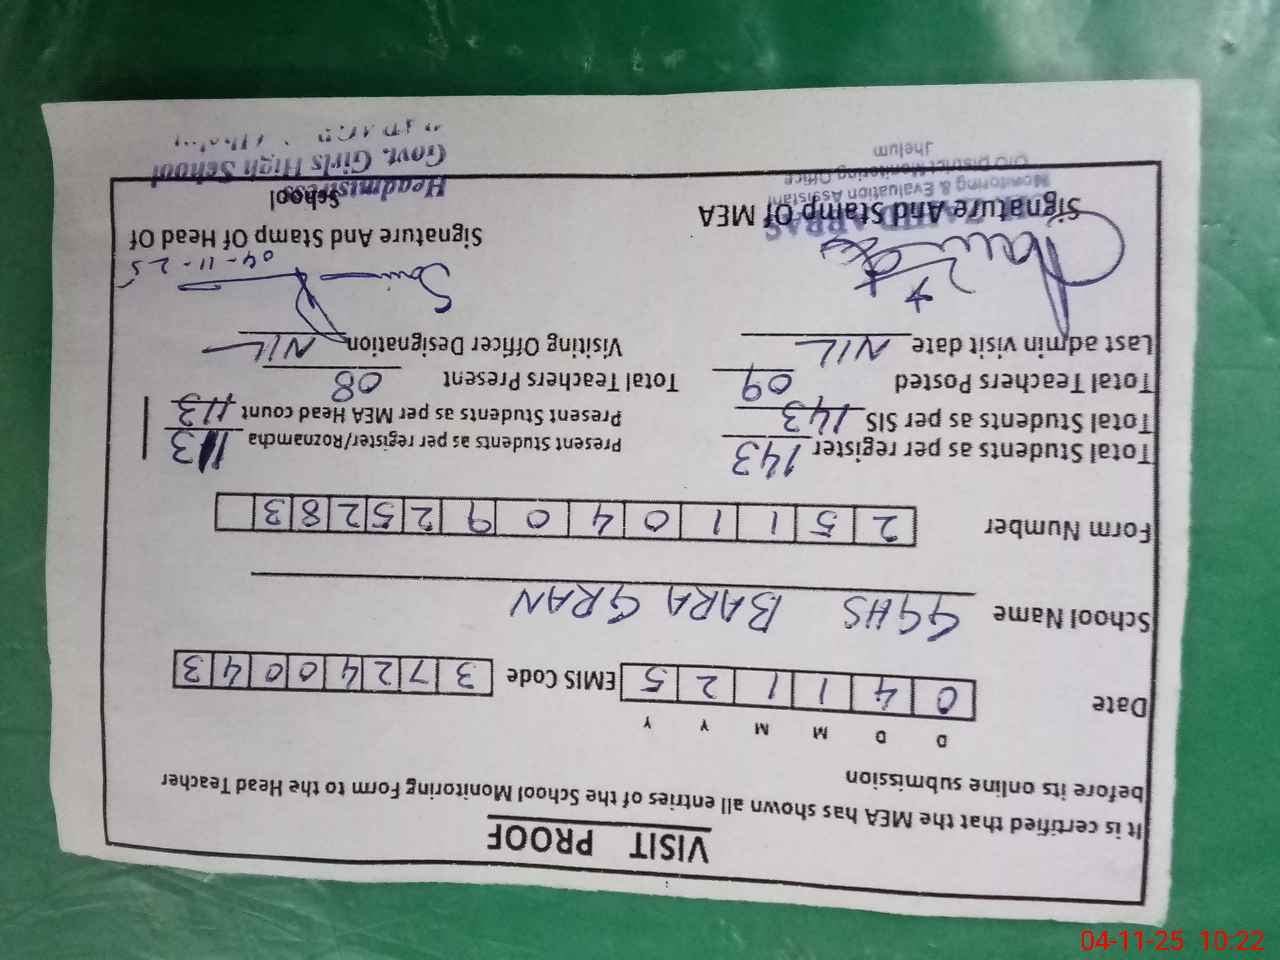 VISIT PROOF
It is certified that the MEA has shown all entries of the School Monitoring Form to the Head Teacher
before its online submission
D D M M Y Y
Date 0 4 1 1 2 5 EMIS Code 3 7 2 4 0 0 4 3
School Name GGHS BARA GRAN
Form Number 2 5 1 1 0 4 0 9 2 5 2 8 3
Total Students as per register 143 Present Students as per register/Roznamcha 113
Total Students as per SIS 143 Present Students as per MEA Head count 113
Total Teachers Posted 09 Total Teachers Present 08
Last admin visit date NIL Visiting Officer Designation NIL
04-11-25
Signature And Stamp Of MEA Signature And Stamp Of Head Of
School
Monitoring & Evaluation Assistant
O/O District Monitoring Office
Jhelum
Headmistress
Govt. Girls High School
04-11-25 10:22